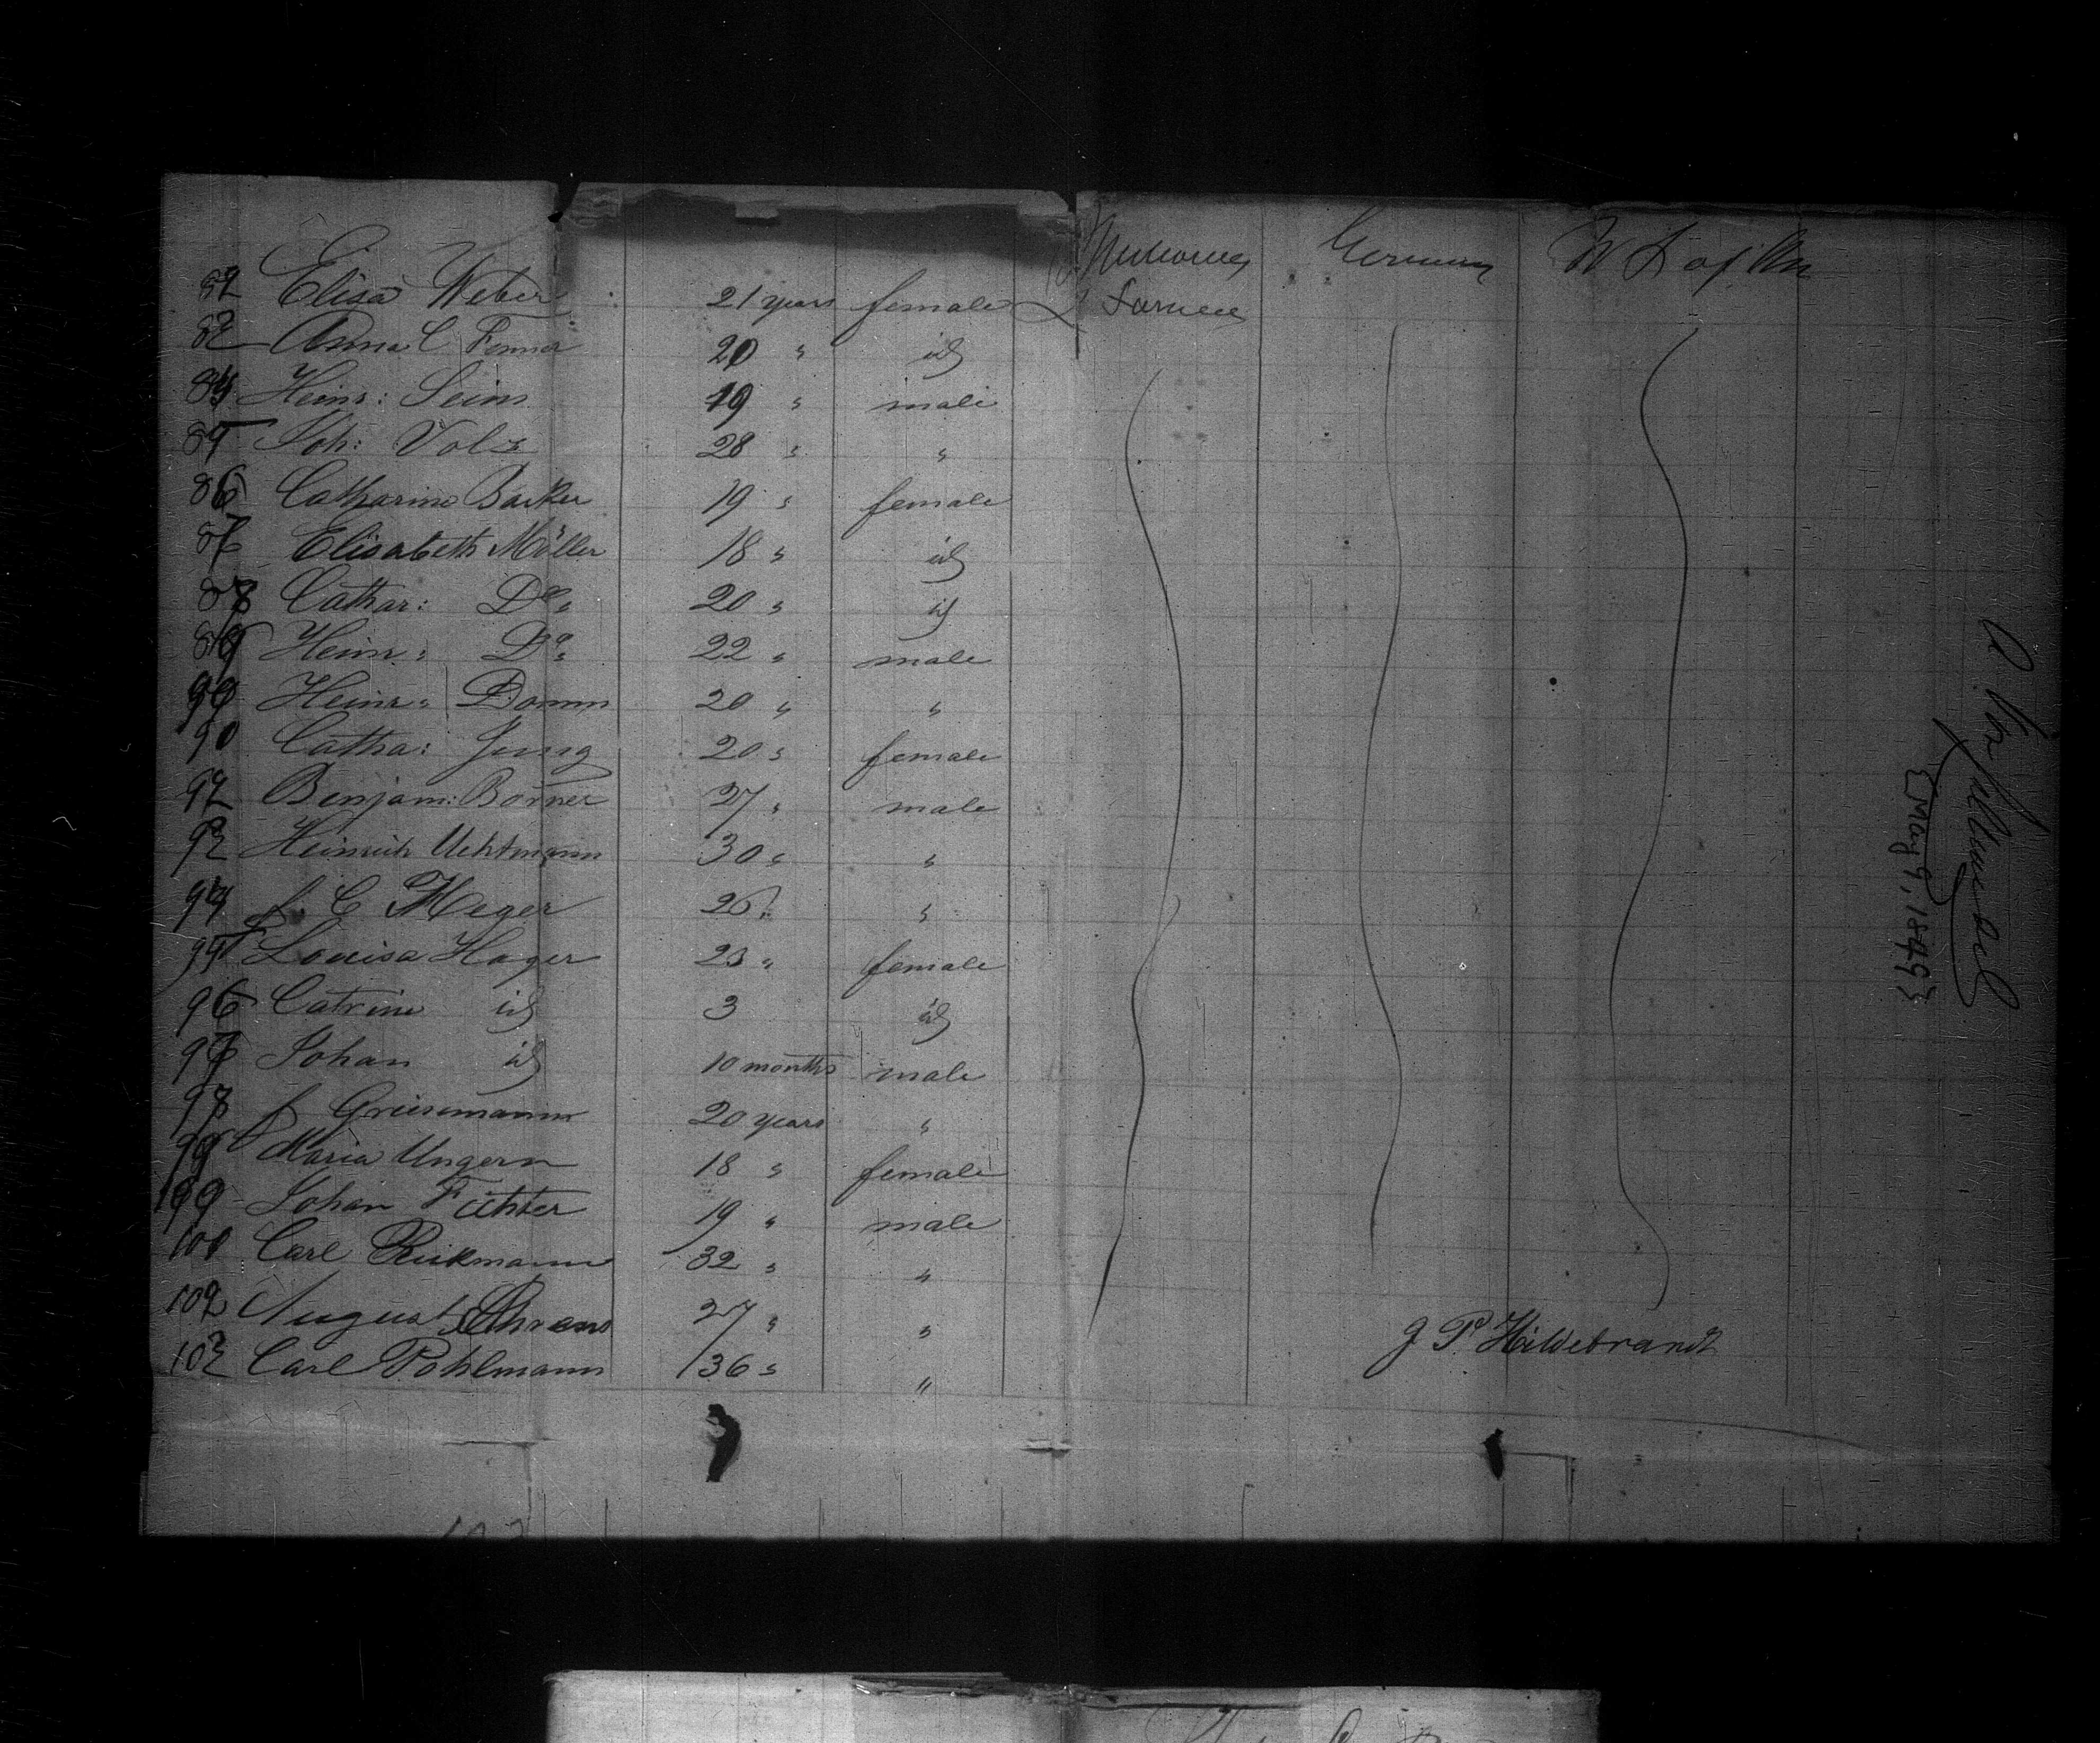 Germany U S of Am
82 Elisa Weber 21 years female Farmer
83 Anna C Fenner 20 " id
84 Heinr: Seim 19 " male
85 Joh: Volz 28 " "
86 Catharine Backer 19 " female
87 Elisabeth Möller 18 " id
88 Cathar: Do " 20 " id
89 Heinr: Do " 22 " male
90 Heinr: Damm 20 " "
91 Catha: Jung 20 " female
92 Benjam: Börner 27 " male
93 Heinrich Uchtmann 30 " "
94 J C Heger 26 " "
95 Louisa Hager 23 " female
96 Catrine id 3 id
97 Johan id 10 months male
98 J Griesemann 20 years "
99 Maria Ungern 18 " female
100 Johan Fichter 19 " male
101 Carl Rickmann 32 " "
102 August Ahrens 27 " "
103 Carl Pohlmann 36 " "
J P Hildebrandt
[May 9, 1849]